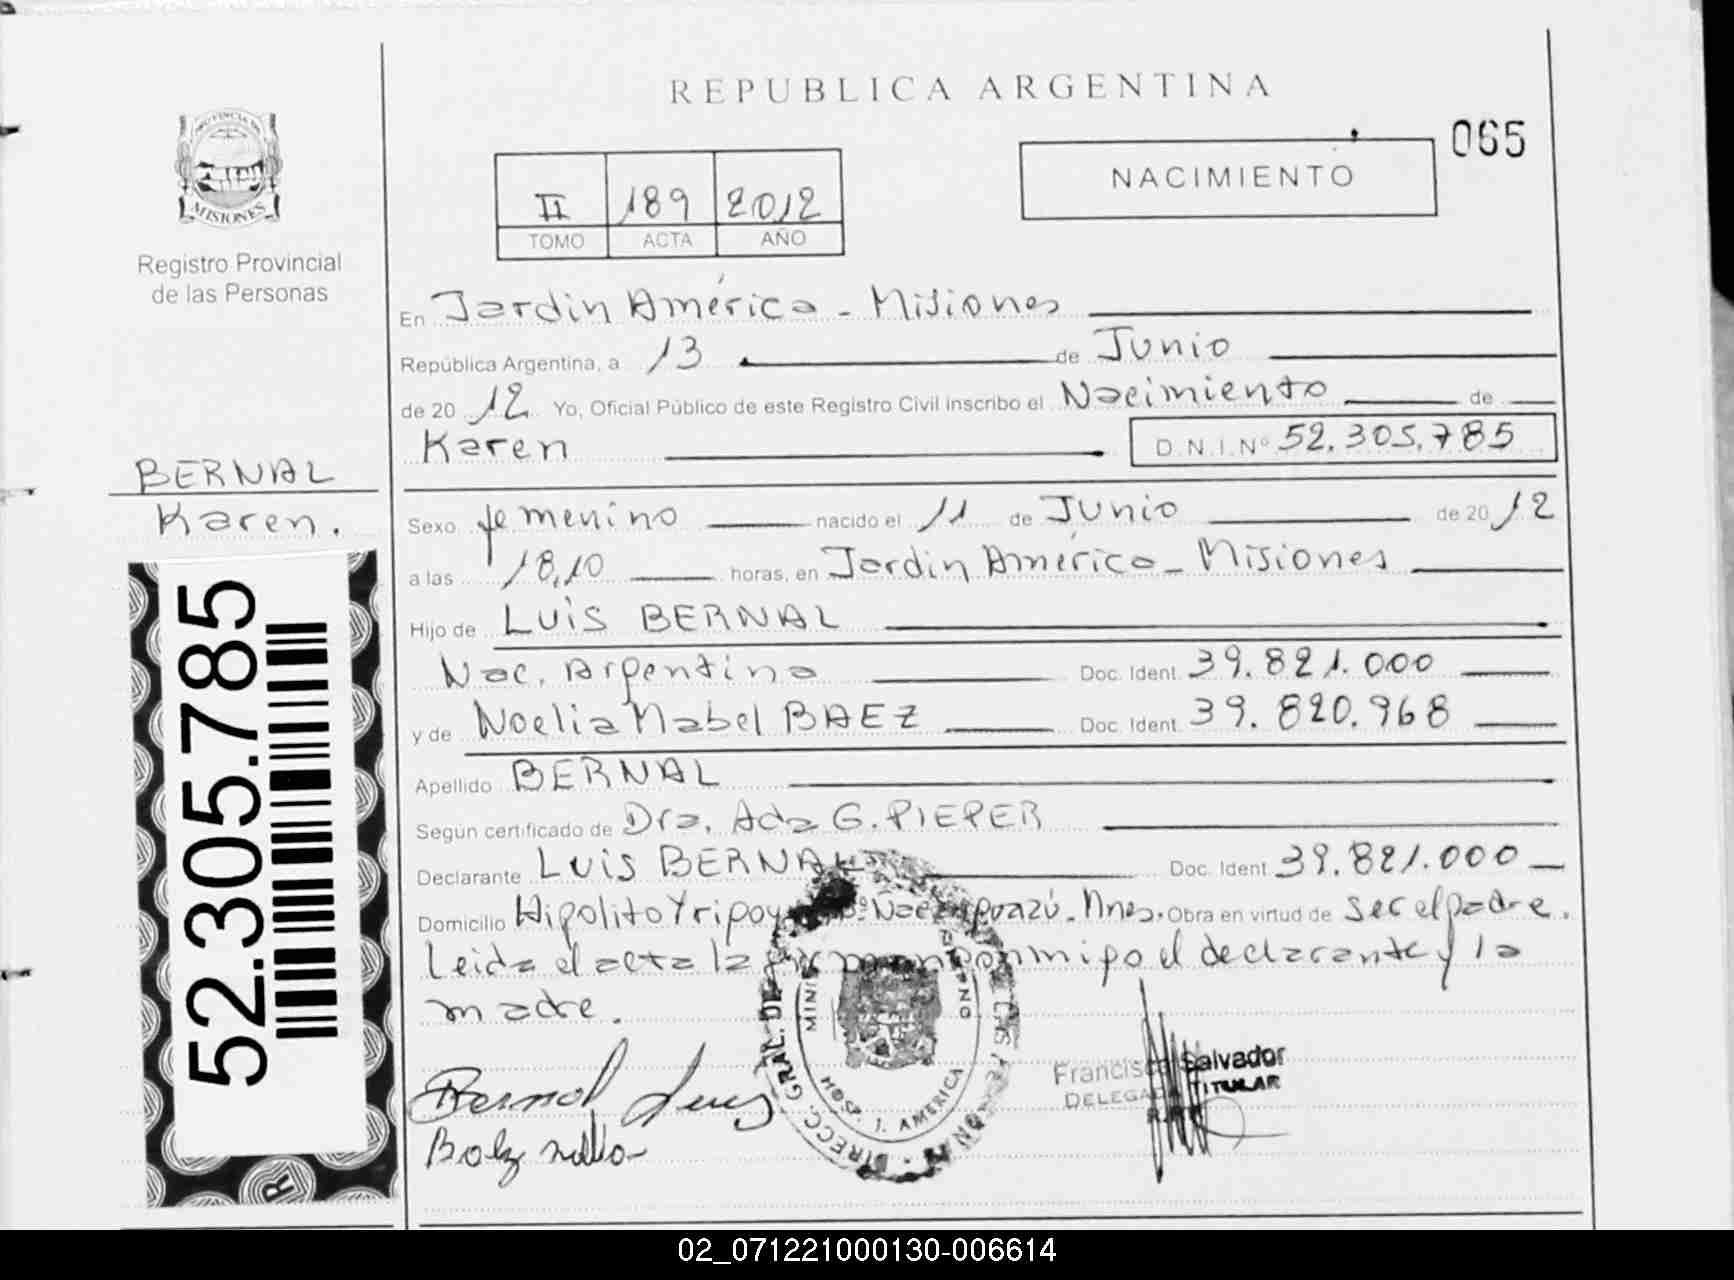 REPUBLICA ARGENTINA
065
NACIMIENTO
II 189 2012
TOMO ACTA AÑO
PROVINCIA DE
MISIONES
Registro Provincial
de las Personas
En Jardin América - Misiones
República Argentina, a 13 de Junio
de 20 12 Yo, Oficial Público de este Registro Civil inscribo el Nacimiento de
Karen D.N.I.Nº 52.305.785
BERNAL
Karen.
Sexo femenino nacido el 11 de Junio de 20 12
a las 18,10 horas, en Jardin América - Misiones
Hijo de Luis BERNAL
Nac. Argentina Doc. Ident. 39.821.000
y de Noelia Mabel BAEZ Doc. Ident. 39.820.968
Apellido BERNAL
Según certificado de Dra. Ada G. PIEPER
Declarante Luis BERNAL Doc. Ident. 39.821.000
Domicilio Hipolito Mnes. Obra en virtud de ser el padre.
Leida el acta la conmigo el declarante y la
madre.
52.305.785
Bernal Luis
Francisco Salvador
DELEGADO TITULAR
DIRECC. GRAL. DE
J. AMERICA
R
02_071221000130-006614